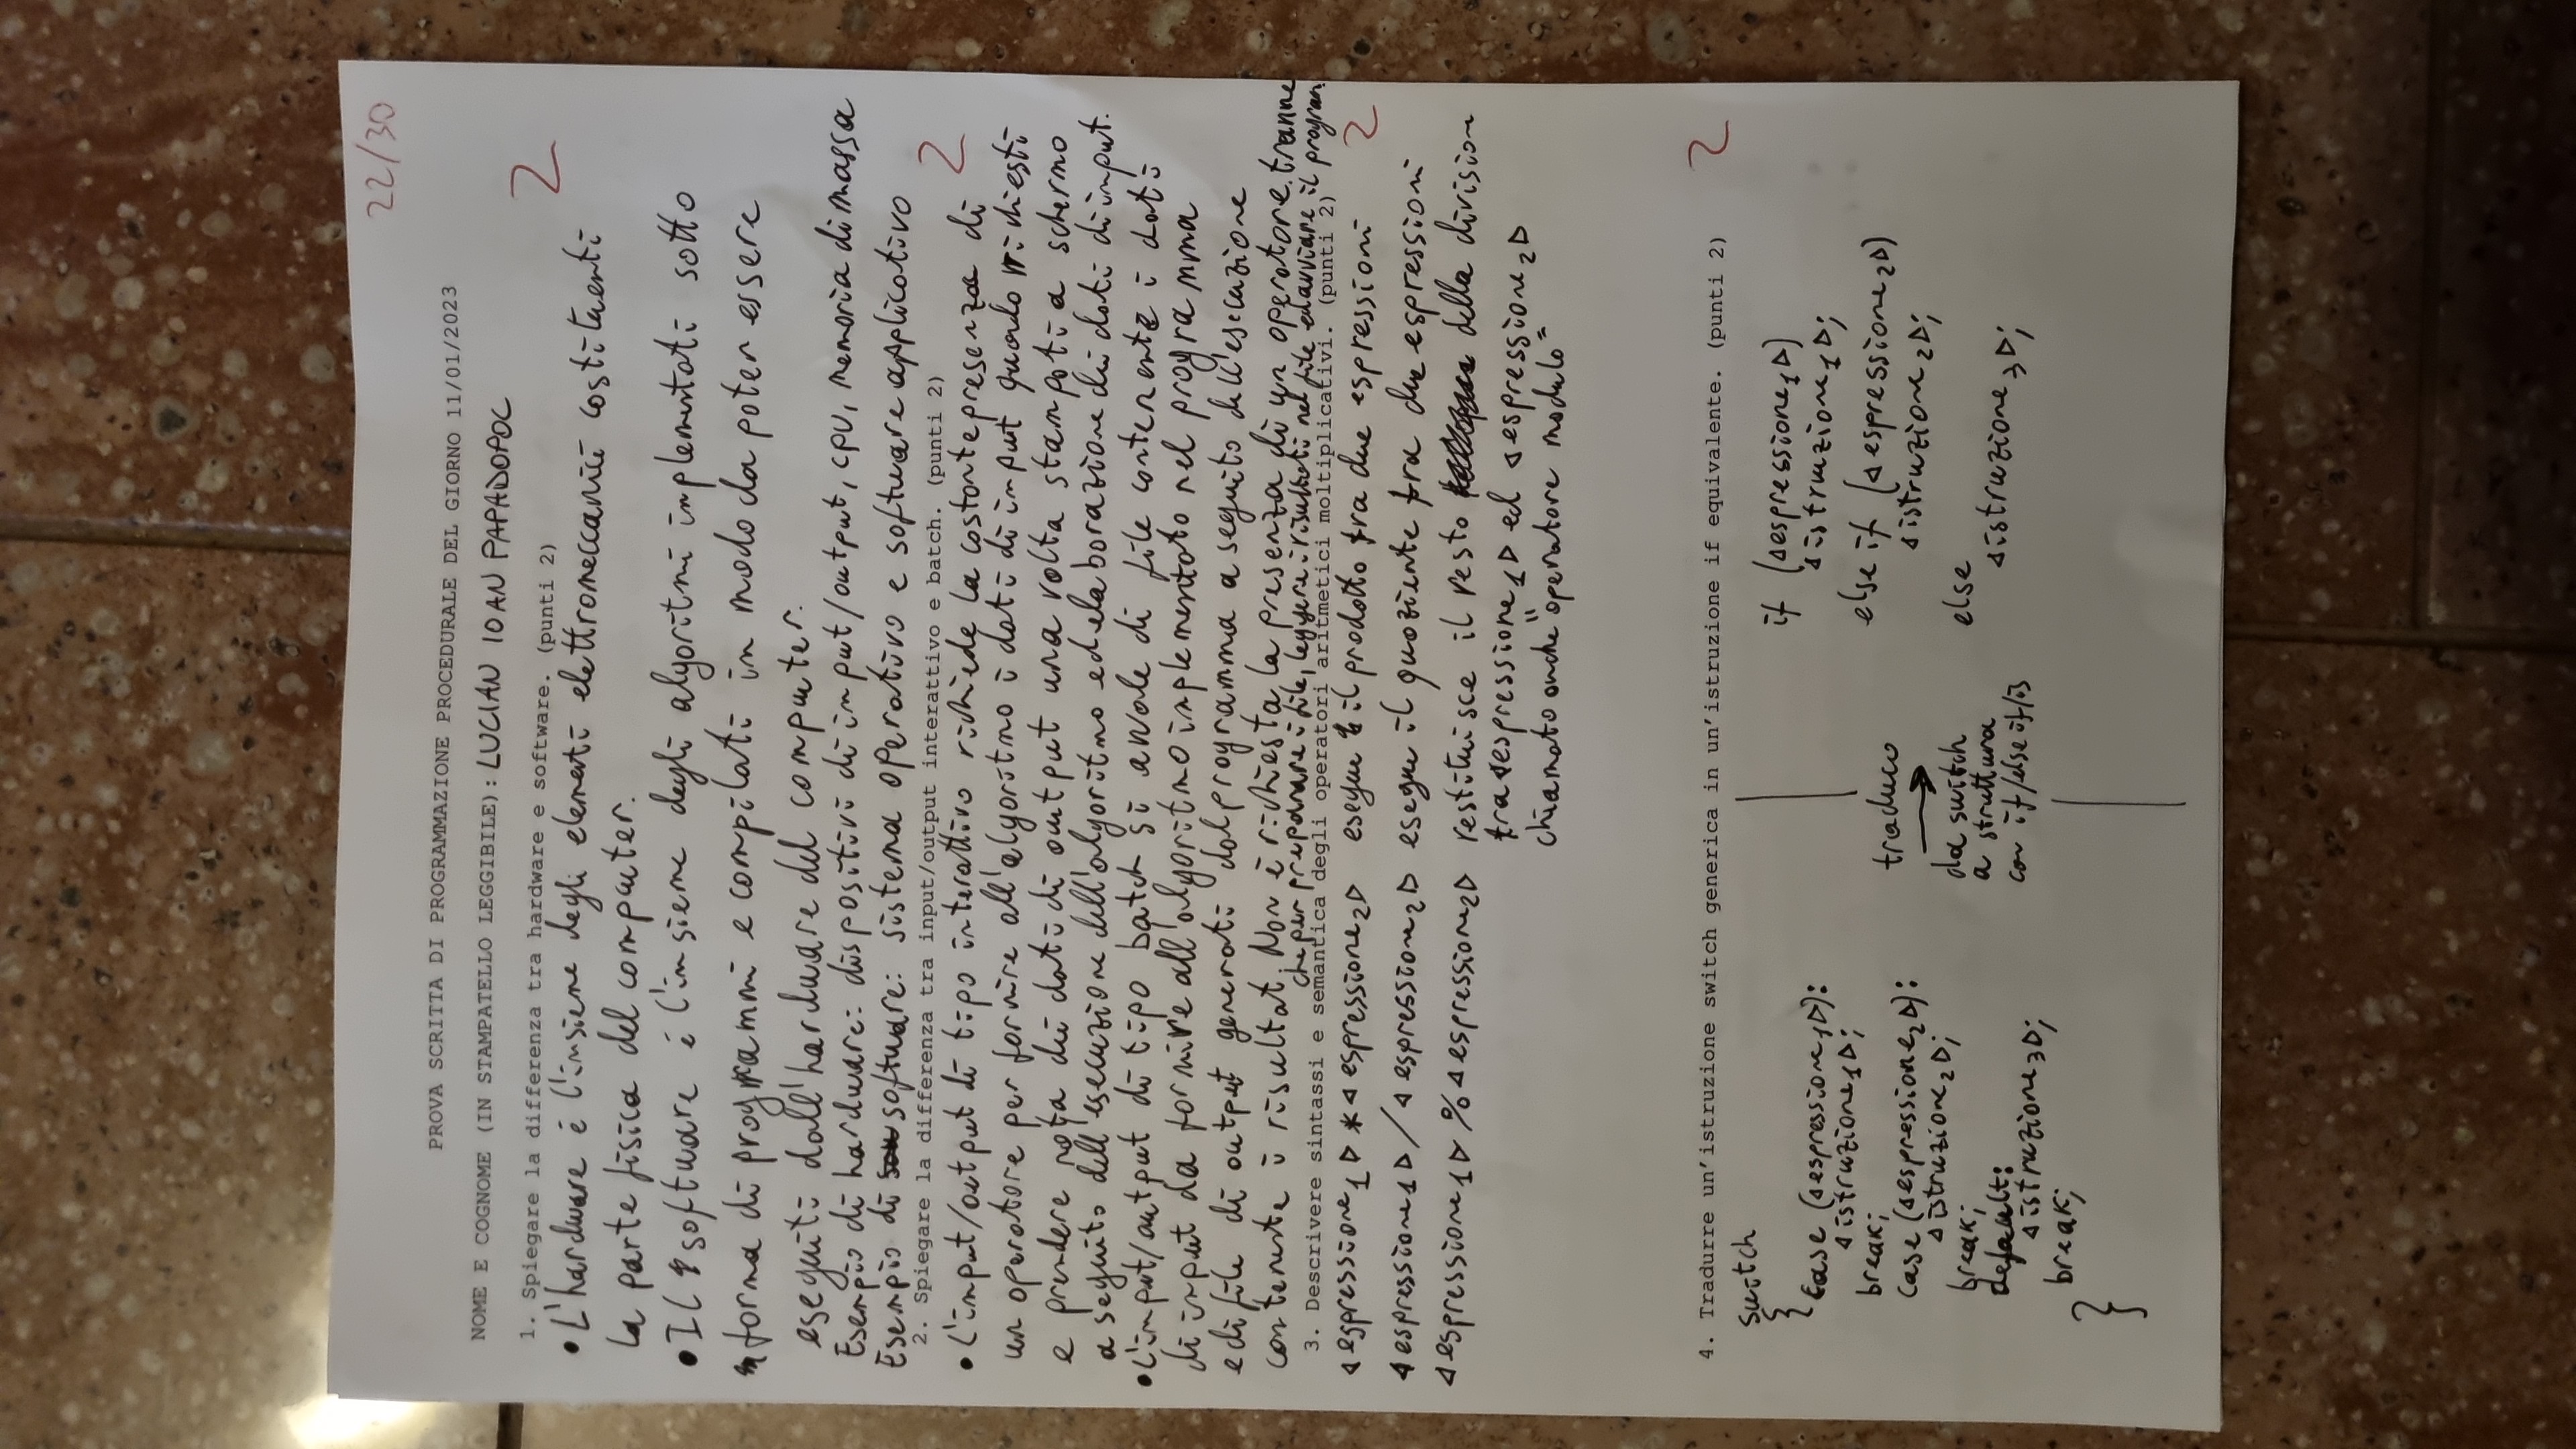 22/30
PROVA SCRITTA DI PROGRAMMAZIONE PROCEDURALE DEL GIORNO 11/01/2023
NOME E COGNOME (IN STAMPATELLO LEGGIBILE): LUCIAN IOAN PAPADOPOL
1. Spiegare la differenza tra hardware e software. (punti 2) 2
• L'hardware é l'insieme degli elementi elettromeccanici costituenti
la parte fisica del computer.
• Il software é l'insieme degli algoritmi implementati sotto
forma di programmi e compilati in modo da poter essere
eseguiti dall'hardware del computer.
Esempio di hardware: dispositivi di input/output, CPU, memoria di massa
Esempio di software: sistema operativo e software applicativo
2. Spiegare la differenza tra input/output interattivo e batch. (punti 2) 2
• L'input/output di tipo interattivo richiede la costante presenza di
un operatore per fornire all'algoritmo i dati di input quando richiesti
e prendere nota dei dati di output una volta stampati a schermo
a seguito dell'esecuzione dell'algoritmo ed elaborazione dei dati di input.
• L'input/output di tipo batch si avvale di file contenente i dati
di input da fornire all'algoritmo implementato nel programma
e di file di output generati dal programma a seguito dell'esecuzione
contenente i risultat. Non è richiesta la presenza di un operatore tranne
che per preparare i file, leggere i risultati nel file ed avviare il program.
3. Descrivere sintassi e semantica degli operatori aritmetici moltiplicativi. (punti 2) 2
◁espressione₁▷ * ◁espressione₂▷ esegue il prodotto tra due espressioni
◁espressione₁▷ / ◁espressione₂▷ esegue il quoziente tra due espressioni
◁espressione₁▷ % ◁espressione₂▷ restituisce il resto della division
tra ◁espressione₁▷ ed ◁espressione₂▷
chiamato anche "operatore modulo"
4. Tradurre un'istruzione switch generica in un'istruzione if equivalente. (punti 2) 2
switch
{
case (◁espressione₁▷):
◁istruzione₁▷;
break;
case (◁espressione₂▷):
◁istruzione₂▷;
break;
default:
◁istruzione₃▷;
break;
}
traduco
→
da switch
a struttura
con if/else if/is
if (◁espressione₁▷)
◁istruzione₁▷;
else if (◁espressione₂▷)
◁istruzione₂▷;
else
◁istruzione₃▷;